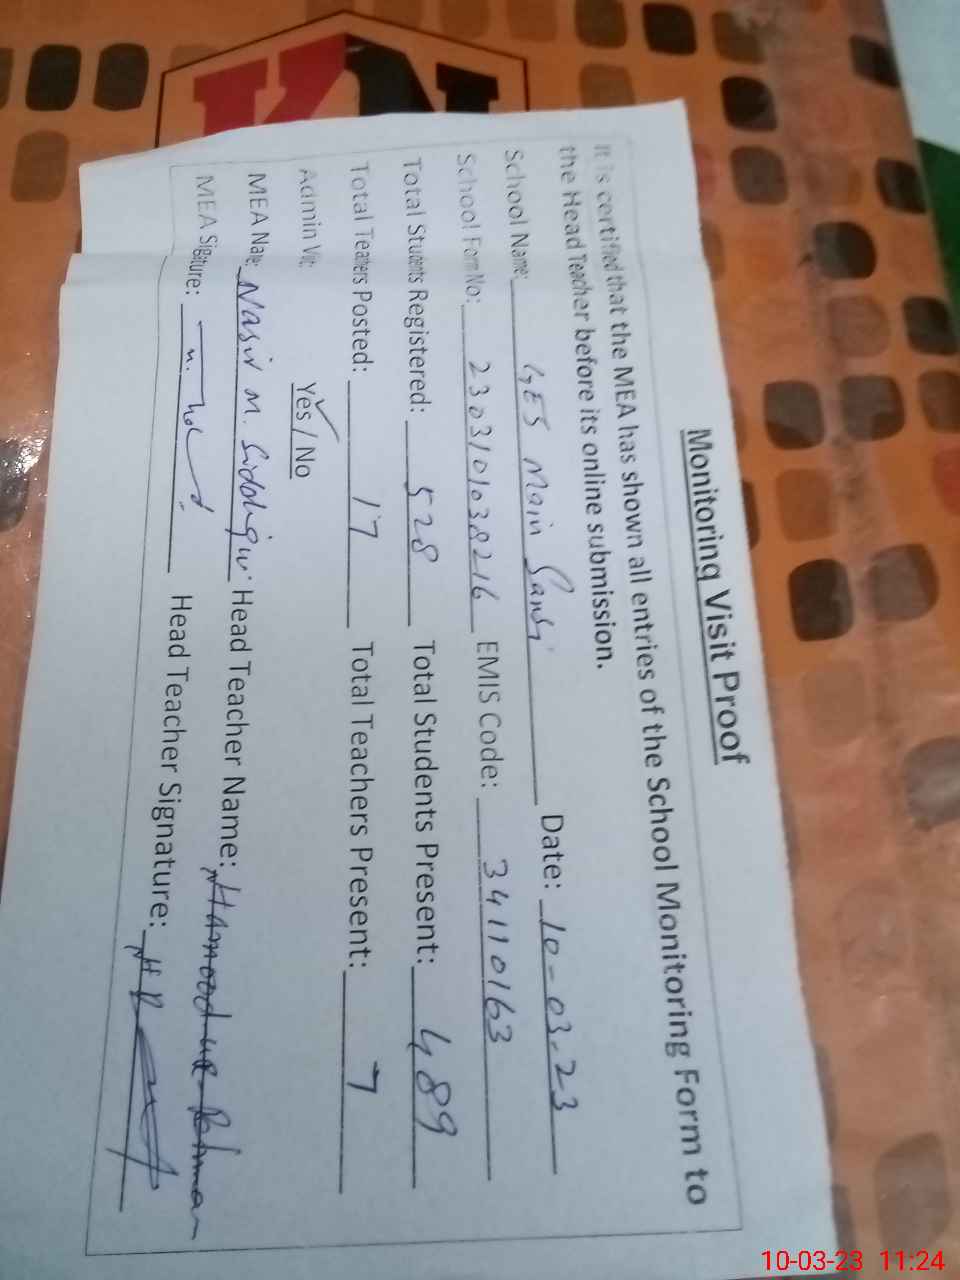 KN
Monitoring Visit Proof
It is certified that the MEA has shown all entries of the School Monitoring Form to
the Head Teacher before its online submission.
School Name: GES Main Sansi Date: 10-03-23
School Form No: 2303101038216 EMIS Code: 34110163
Total Students Registered: 528 Total Students Present: 489
Total Teachers Posted: 17 Total Teachers Present: 7
Admin Visit: Yes / No
MEA Name: Nasir M. Siddiqui Head Teacher Name: Hamood-ur-Rehman
MEA Signature: Head Teacher Signature:
10-03-23 11:24